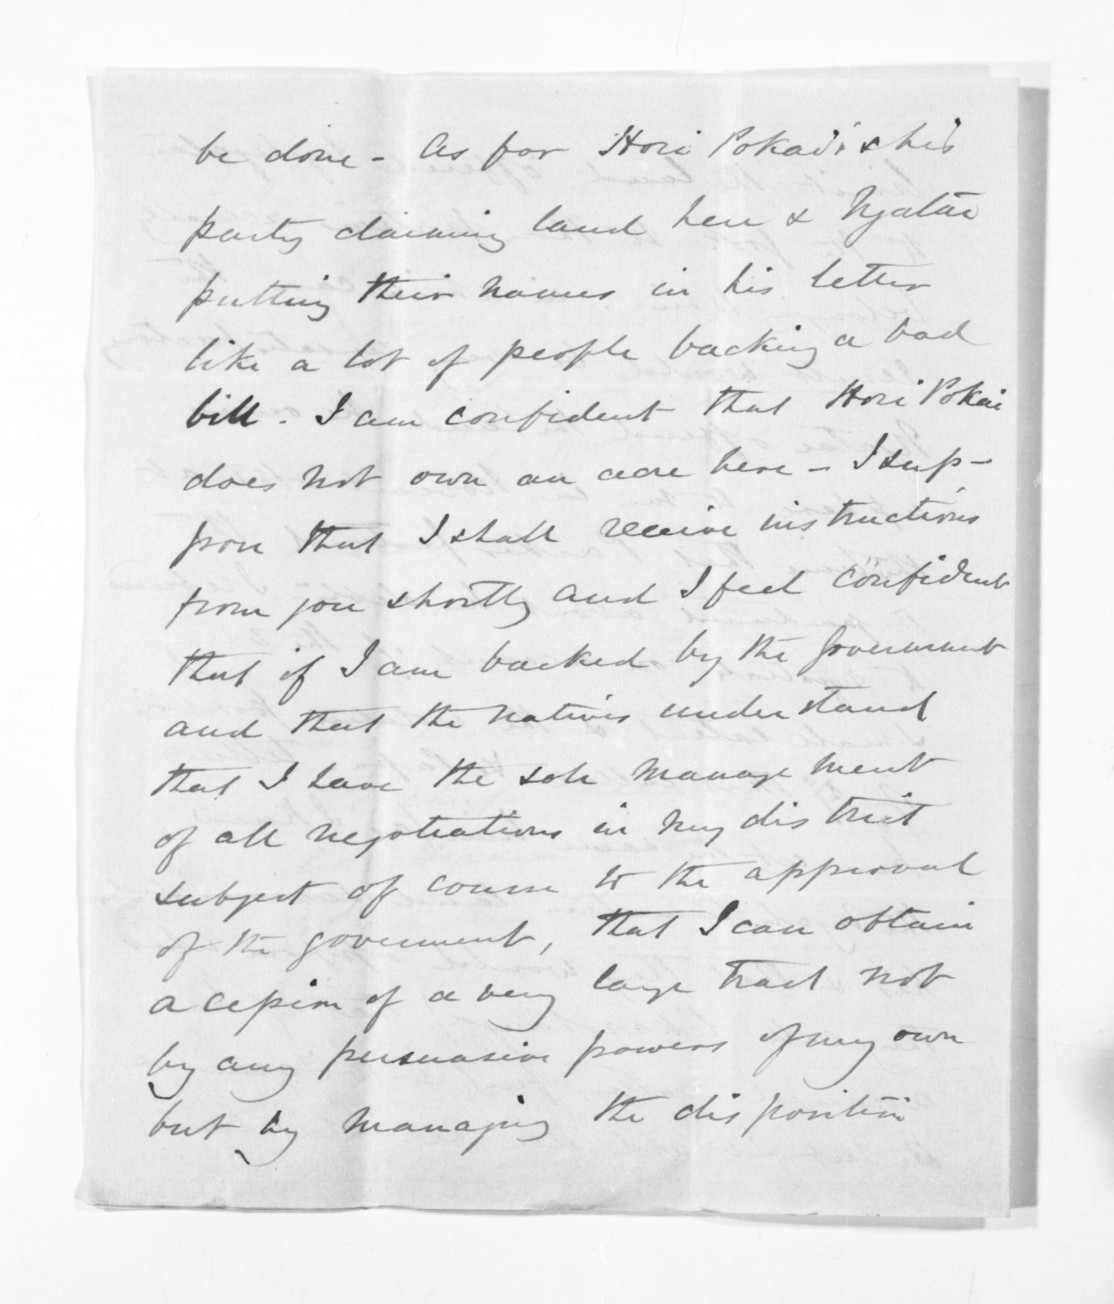 be done - As for Hori Pokai's & his
party claiming land here & Ngatai
putting their names in his letter
like a lot of people backing a bad
bill. I am confident that Hori Pokai
does not own an acre here - I sup-
pose that I shall receive instructions
from you shortly and I feel confident
that if I am backed by the Government
and that the natives understand
that I have the sole management
of all negotiations in my district
subject of course to the approval
of the government, that I can obtain
a cession of a very large tract not
by any persuasive powers of my own
but by managing the disposition